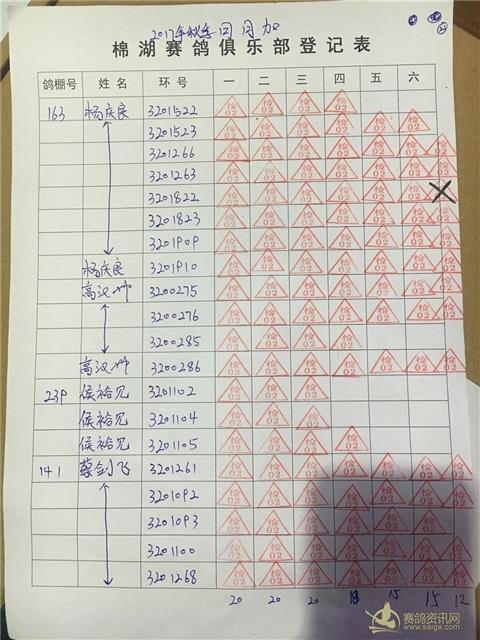 2017年秋季
棉湖赛鸽俱乐部登记表
鸽棚号 姓名 环号 一 二 三 四 五 六
163 杨庆良 3201522 检02 检02 检02 检02
3201523 检02 检02 检02 检02 检02 检02
3201266 检02 检02 检02 检02 检02 检02 检02
3201263 检02 检02 检02 检02 检02 检02 检02
3201822 检02 检02 检02 检02 检02 检02
3201823 检02 检02 检02 检02 检02 检02 检02
3201909 检02 检02 检02 检02 检02 检02 检02
杨庆良 3201910 检02 检02 检02 检02 检02 检02 检02
高汉 3200275 检02 检02 检02 检02 检02 检02 检02
3200276 检02 检02 检02 检02 检02 检02 检02
3200285 检02 检02 检02 检02
高汉 3200286 检02 检02 检02 检02 检02 检02 检02
239 侯裕 3201102 检02 检02 检02
侯裕 3201104 检02 检02 检02
侯裕 3201105 检02 检02 检02 检02
141 蔡剑飞 3201261 检02 检02 检02 检02 检02 检02 检02
3201092 检02 检02 检02 检02 检02 检02 检02
3201093 检02 检02 检02 检02 检02 检02
3201100 检02 检02 检02 检02 检02 检02 检02
3201268 检02 检02 检02 检02 检02 检02 检02
20 20 20 18 15 15 12
赛鸽资讯网
www.saige.com